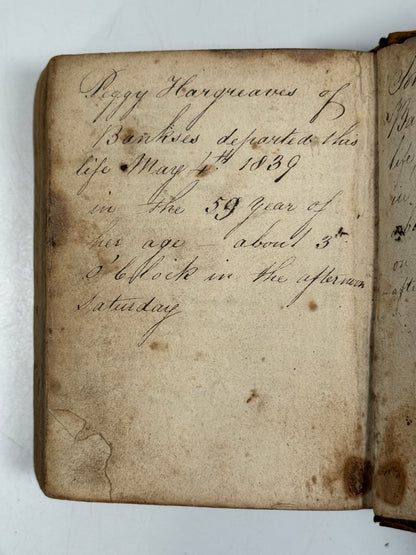 Peggy Hargreaves of
Bankses departed this
life May 4th 1839
in the 59 year of
her age – about 3
O'Clock in the afternoon
Saturday